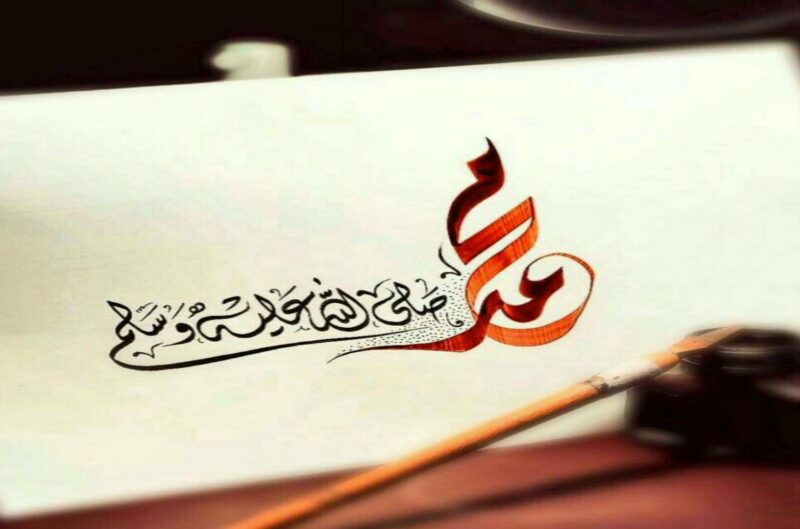 محمد صَلَّى اللّٰه عَلَيْهِ وَسَلَّم